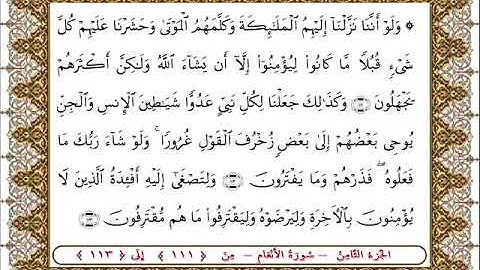 ۞ وَلَوْ أَنَّنَا نَزَّلْنَا إِلَيْهِمُ الْمَلَٰٓئِكَةَ وَكَلَّمَهُمُ الْمَوْتَىٰ وَحَشَرْنَا عَلَيْهِمْ كُلَّ
شَىْءٍ قُبُلًا مَّا كَانُوا لِيُؤْمِنُوٓا إِلَّآ أَن يَشَآءَ اللَّهُ وَلَٰكِنَّ أَكْثَرَهُمْ
يَجْهَلُونَ ﴿١١١﴾ وَكَذَٰلِكَ جَعَلْنَا لِكُلِّ نَبِىٍّ عَدُوًّا شَيَٰطِينَ الْإِنسِ وَالْجِنِّ
يُوحِى بَعْضُهُمْ إِلَىٰ بَعْضٍ زُخْرُفَ الْقَوْلِ غُرُورًا ۚ وَلَوْ شَآءَ رَبُّكَ مَا
فَعَلُوهُ ۖ فَذَرْهُمْ وَمَا يَفْتَرُونَ ﴿١١٢﴾ وَلِتَصْغَىٰٓ إِلَيْهِ أَفْـِٔدَةُ الَّذِينَ لَا
يُؤْمِنُونَ بِالْءَاخِرَةِ وَلِيَرْضَوْهُ وَلِيَقْتَرِفُوا مَا هُم مُّقْتَرِفُونَ ﴿١١٣﴾
الجزء الثامن – سورة الأنعام – من ﴿ ١١١ ﴾ إلى ﴿ ١١٣ ﴾